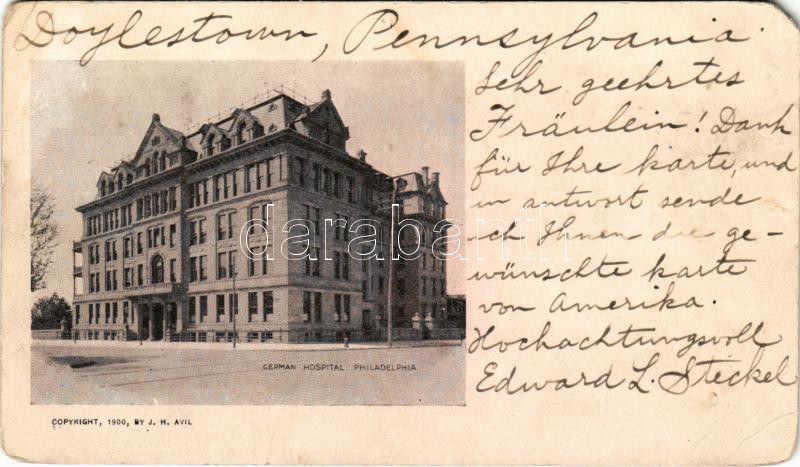 Doylestown, Pennsylvania.
Sehr geehrtes
Fräulein! Dank
für Ihre karte, und
in antwort sende
ich Ihnen die ge-
wünschte karte
von Amerika.
Hochachtungsvoll
Edward L. Steckel
darabanth
GERMAN HOSPITAL PHILADELPHIA
COPYRIGHT, 1900, BY J. H. AVIL